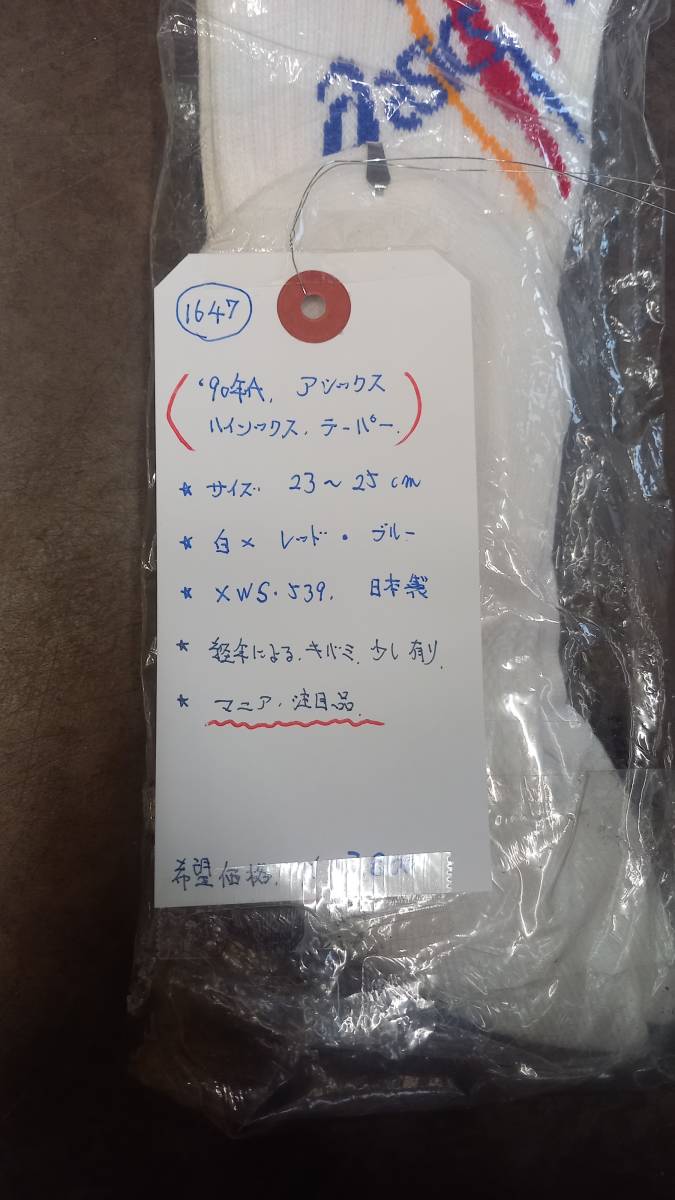 asics
1647
'90年代、アシックス
ハイソックス、テーパー、
★ サイズ 23～25cm
★ 白× レッド・ブルー
★ XWS・539、日本製
★ 経年による、キバミ、少し有り、
★ マニア・注目品、
希望価格、